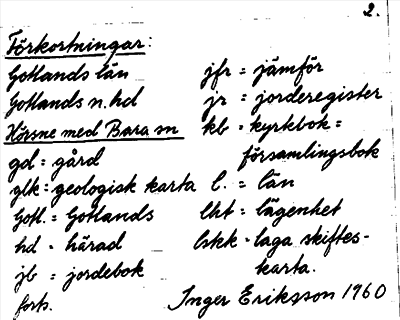 2.
Förkortningar:
Gotlands län
Gotlands n. hd
Hörsne med Bara sn
gd = gård
glk = geologisk karta
Gotl. = Gotlands
hd = härad
jb = jordebok
forts.
jfr = jämför
jr = jorderegister
kb = kyrkbok =
församlingsbok
l. = län
lht = lägenhet
lskk = laga skiftes-
karta.
Inger Eriksson 1960